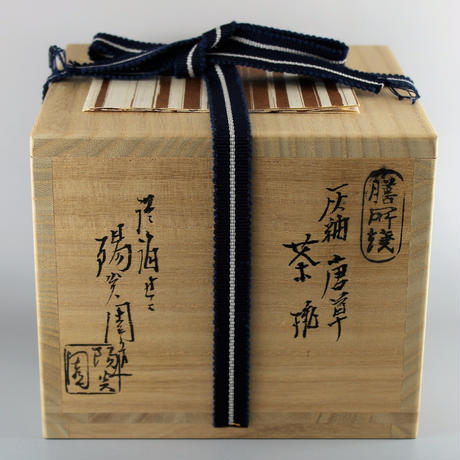 膳所焼
灰釉唐草
茶碗
陽炎園
陽炎
園